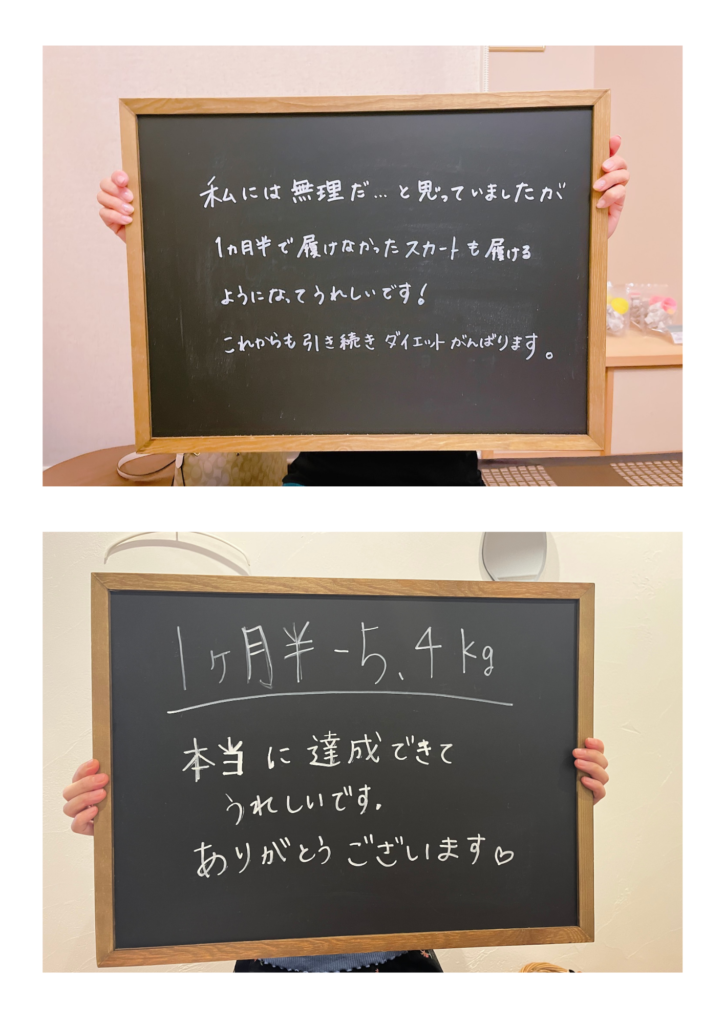 私には無理だ…と思っていましたが
1カ月半で履けなかったスカートも履ける
ようになってうれしいです!
これからも引き続きダイエットがんばります。
1ヶ月半-5.4kg
本当に達成できて
うれしいです.
ありがとうございます♡